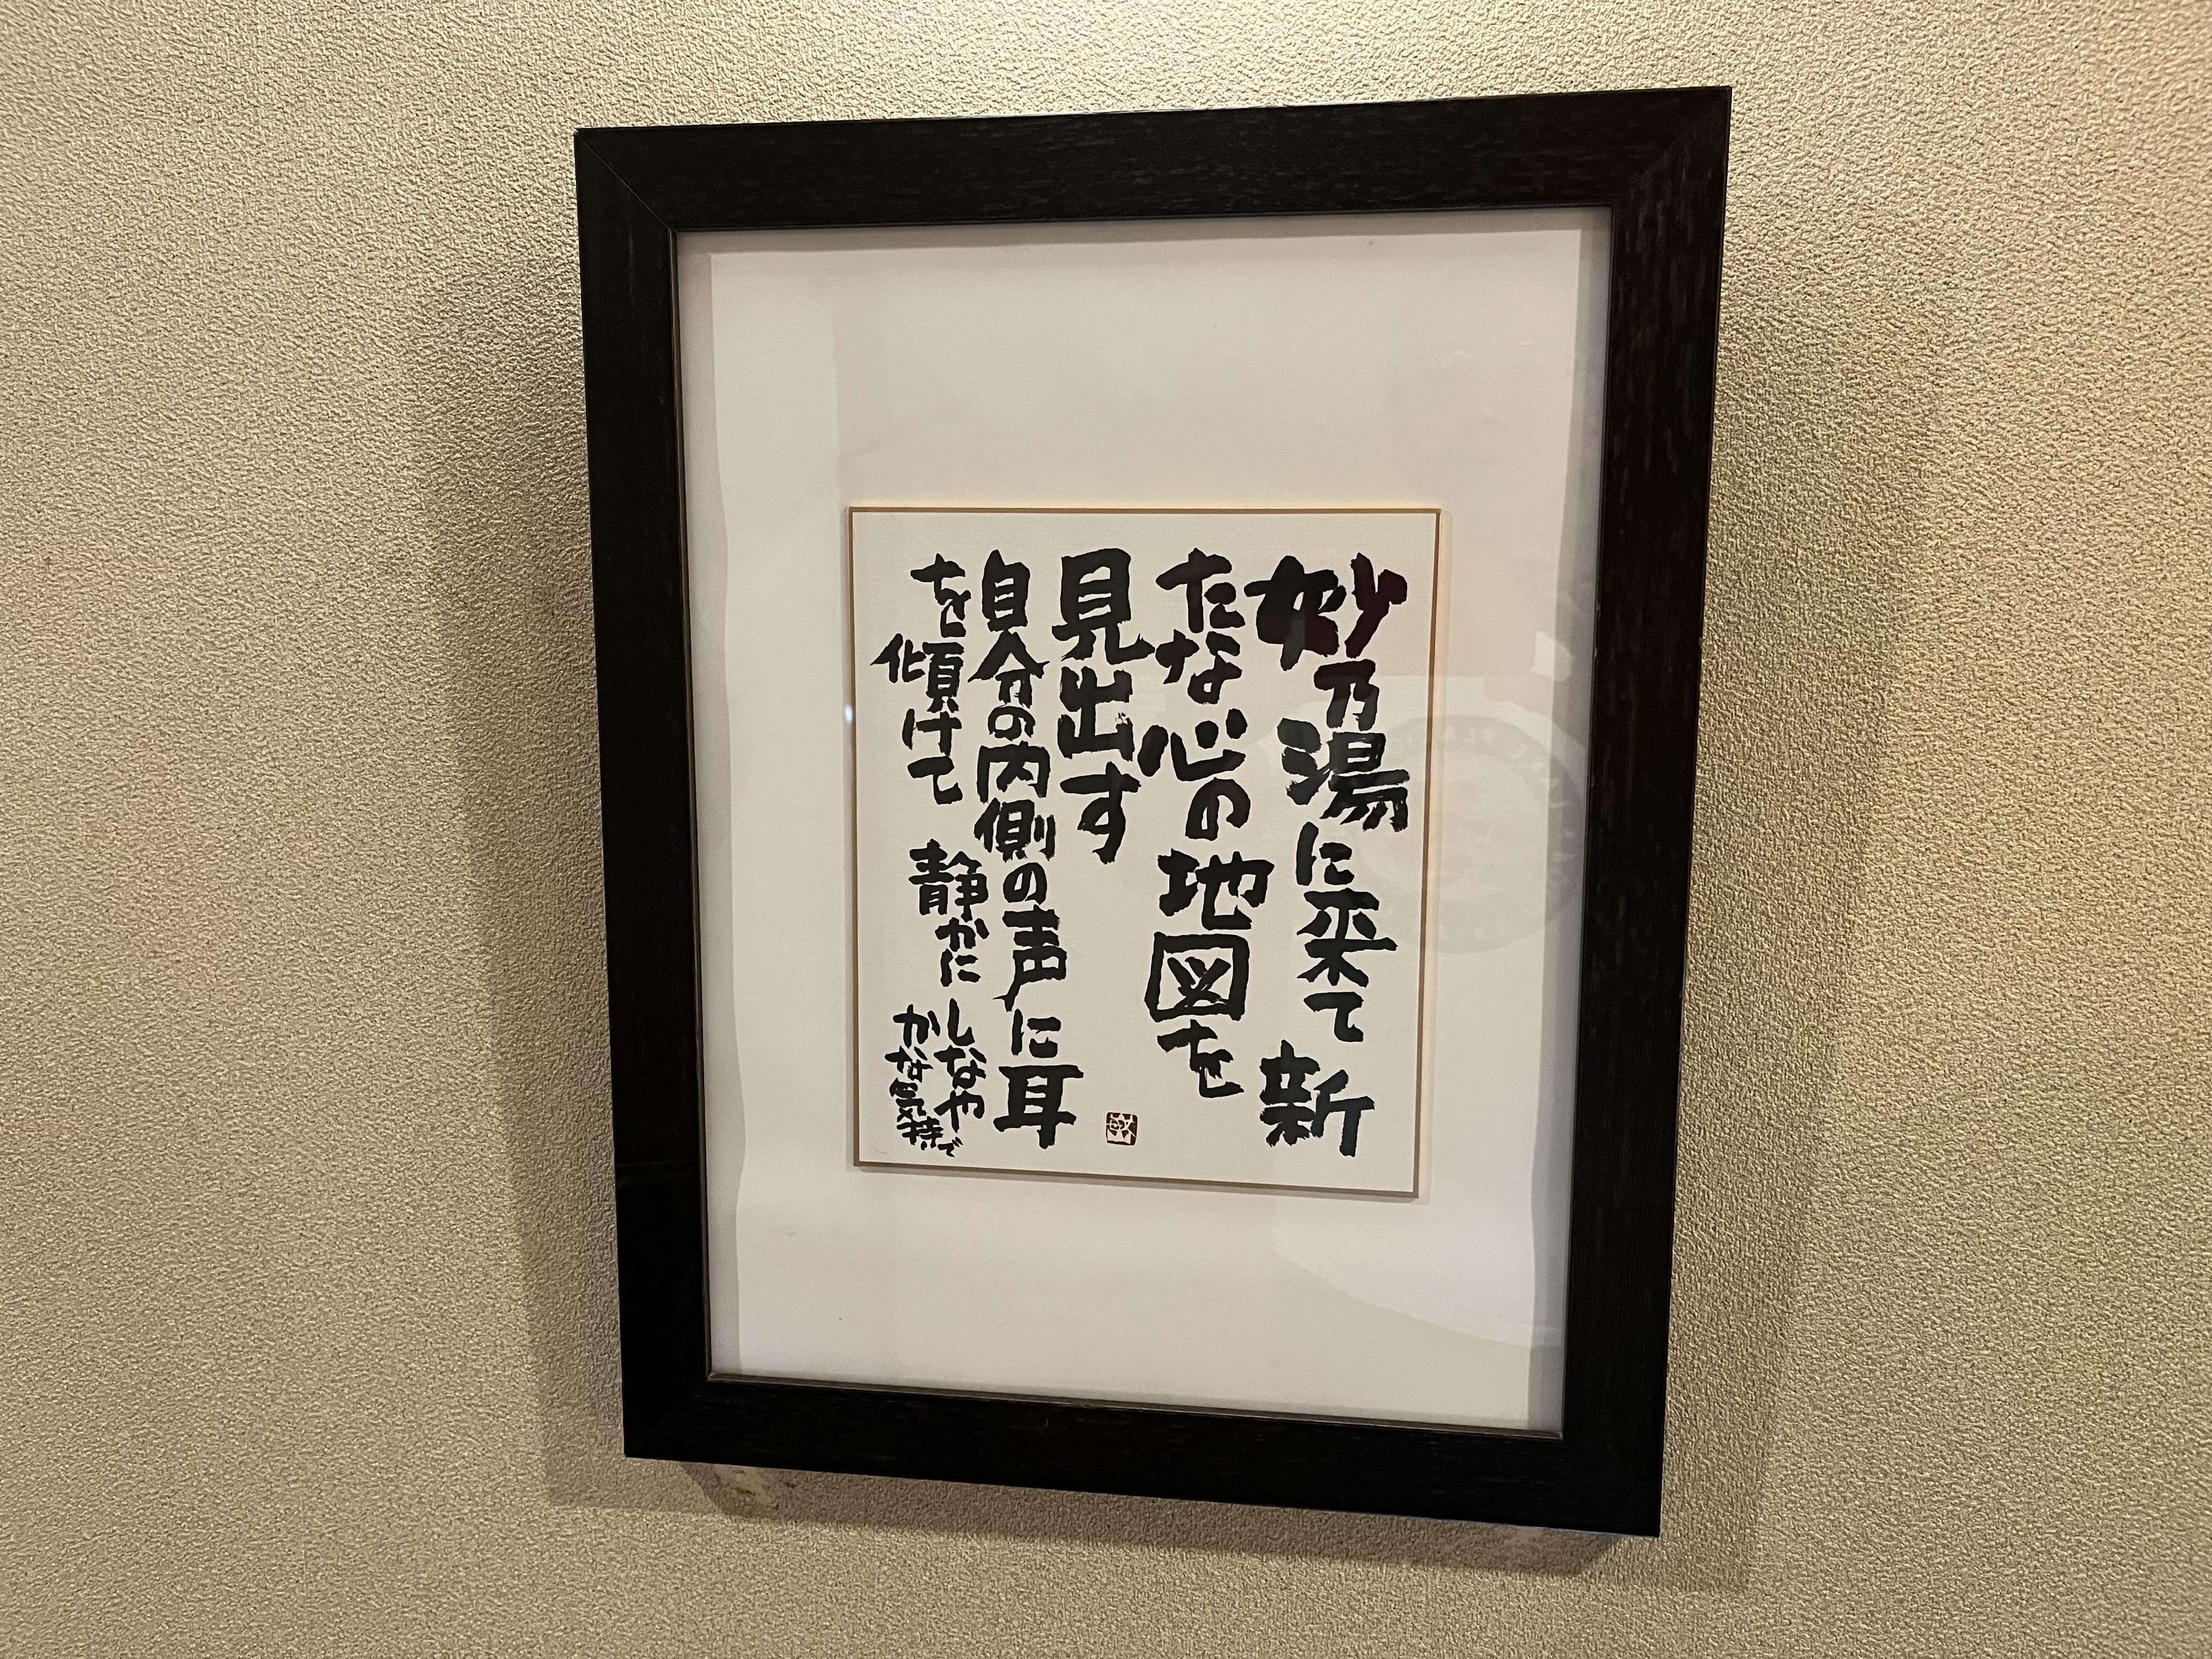 妙乃湯に来て 新
たな心の地図を
見出す
自分の内側の声に耳
を傾けて 静かに
しなや
かな気持で